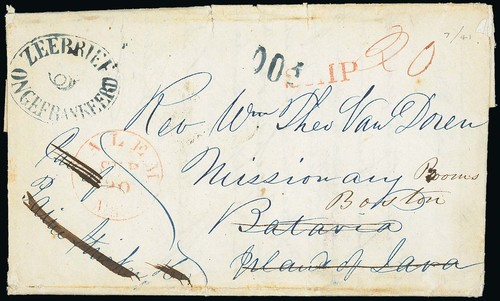 ZEEBRIEF
ONGEFRANKEERD
SHIP
20
7/41
SALEM
SEP
20
Rev Wm Theo Van Doren
Missionary Rooms
Boston
Batavia
Island of Java